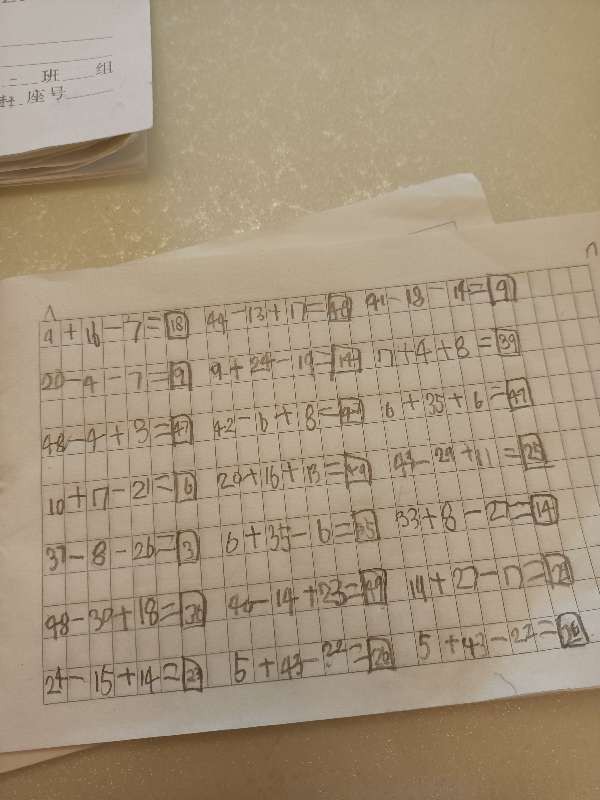 班 组
座号
9+16-7=18 44-13+17=48 41-18-14=9
20-4-7=9 9+24-19=14 17+4+8=39
48-4+3=47 42-6+8=44 6+35+6=47
10+17-21=6 20+16+13=49 43-29+11=25
37-8-26=3 6+35-6=35 33+8-27=14
48-30+18=36 40-14+23=49
24-15+14=23 5+43-22=26 5+43-22=26